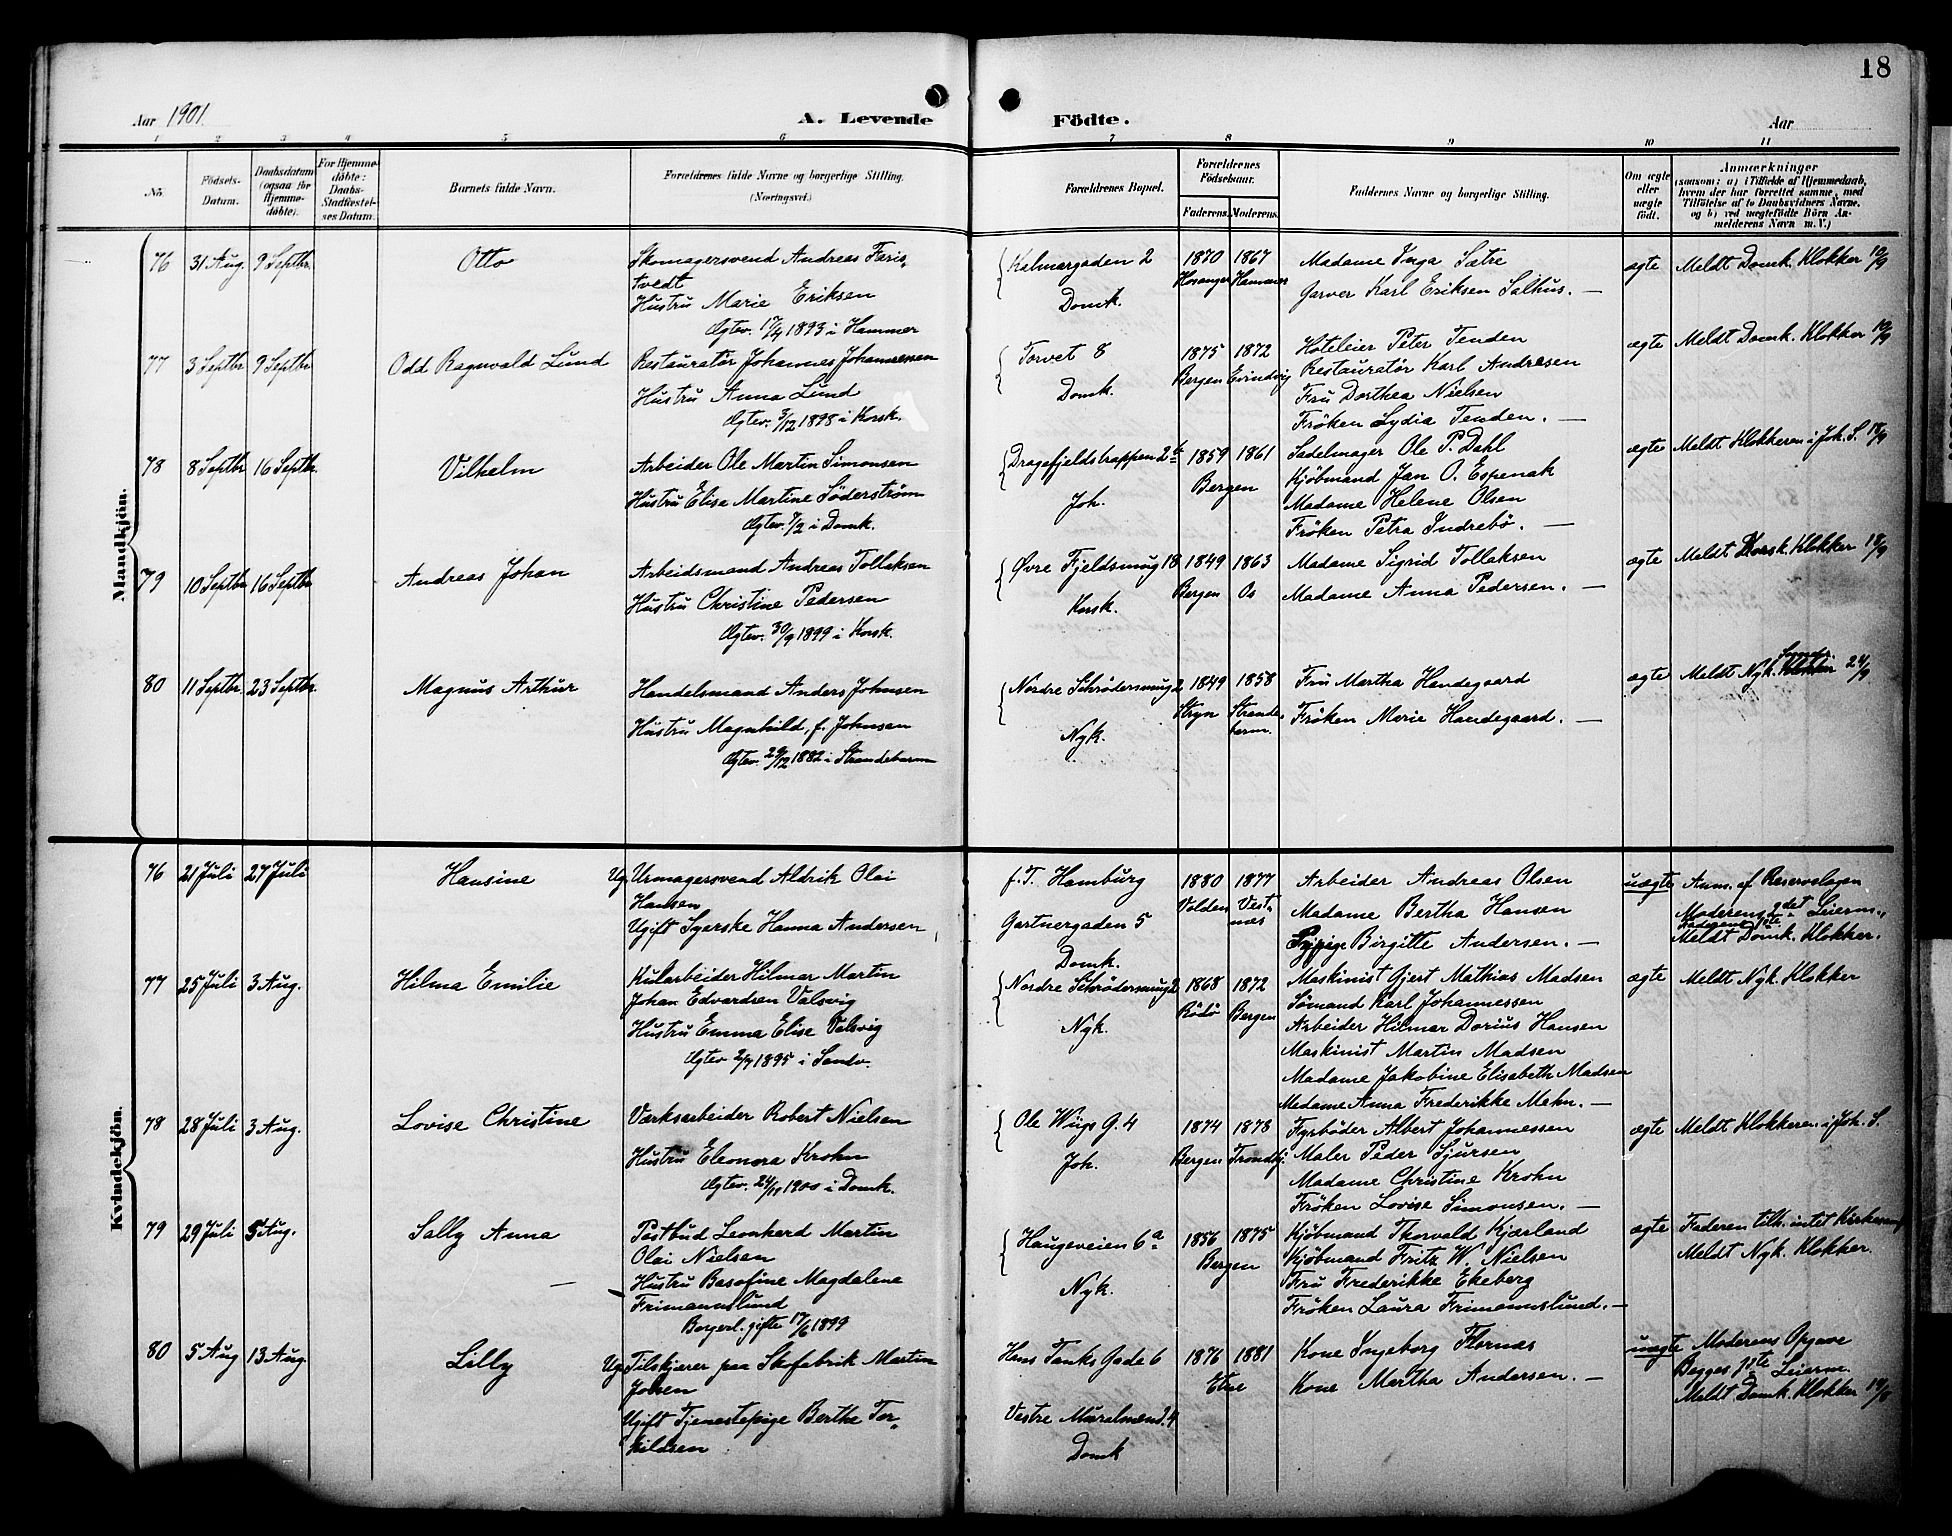 18
Aar 1901.
A. Levende Födte.
Aar
1 2 3 4 5 6 7 8 9 10 11
No.
Födsels-Datum.
Daabsdatum (ogsaa for Hjemmedöbte).
For Hjemmedöbte: Daabs-Stadfæstelses Datum.
Barnets fulde Navn.
Forældrenes fulde Navne og borgerlige Stilling.
(Næringsvei.)
Forældrenes Bopæl.
Forældrenes Födselsaar.
Faderens. Moderens.
Faddernes Navne og borgerlige Stilling.
Om ægte eller uægte födt.
Anmærkninger
(saasom: a) i Tilfælde af Hjemmedaab, hvem der har forrettet samme, med Tilföielse af to Daabsvidners Navne, og b) ved uægtefödte Börn Anmelderens Navn m. V.)
Mandkjön.
76 31 Aug. 9 Septbr. Otto
Skomagersvend Andreas Faris-
tvedt
Hustru Marie Eriksen
Ægtev. 17/4 1893 i Hammer
Kalmargaden 2
Domk.
1870 1867
Hosanger Hammer
Madame Inga Sætre
Garver Karl Eriksen Salhus. —
ægte
Meldt Domk. Klokker 10/9
77 3 Septbr 9 Septbr Odd Ragnvald Lund
Restauratør Johannes Johannessen
Hustru Anna Lund
Ægtev. 3/12 1898 i Korsk.
Torvet 8
Domk.
1875 1872
Bergen Evindvig
Hoteleier Peter Tenden
Restauratør Karl Andresen
Fru Dorthea Nielsen
Frøken Lydia Tenden. —
ægte
Meldt Domk. Klokker 10/9
78 8 Septbr 16 Septbr. Vilhelm
Arbeider Ole Martin Simonsen
Hustru Elise Martine Söderstrøm
Ægtev. 7/2 i Domk.
Dragefjeldstrappen 2b
Joh.
1859 1861
Bergen
Sadelmager Ole P. Dahl
Kjöbmand Jan O. Espenak
Madame Helene Olsen
Frøken Petra Indrebö. —
ægte
Meldt Klokkeren i Joh. S. 18/9
79 10 Septbr 16 Septbr Andreas Johan
Arbeidsmand Andreas Tollaksen
Hustru Christine Pedersen
Ægtev. 30/9 1899 i Korsk.
Øvre Fjeldsmug 18
Korsk.
1849 1863
Bergen Os
Madame Sigrid Tollaksen
Madame Anna Pedersen. —
ægte
Meldt Korsk. Klokker 18/9
80 11 Septbr. 23 Septbr. Magnus Arthur
Handelsmand Anders Johnsen
Hustru Magnhild, f. Johnsen
Ægtev. 29/12 1882 i Strandebarm
Nordre Schrödersmug 2
Nyk.
1849 1858
Stryn Strande-
barm.
Fru Martha Handegaard
Frøken Marie Handegaard. —
ægte
Meldt Nyk. 24/9
Kvindekjön.
76 21 Juli 27 Juli Hansine
Ug. Urmagersvend Aldrik Olai
Hansen
Ugift Syerske Hanna Andersen
f. T. Hamburg
Gartnergaden 5
Domk.
1880 1877
Volden Vest-
nes
Arbeider Andreas Olsen
Madame Bertha Hansen
Sypige Birgitte Andersen. —
uægte
Anm. af Reservelægen
Moderens 2det Leierm.,
Faderens 1ste
Meldt Domk. Klokker.
77 25 Juli 3 Aug. Hilma Emilie
Kularbeider Hilmar Martin
Johan Edvardsen Valsvig
Hustru Emma Elise Valsvig
Ægtev 2/7 1895 i Sandv.
Nordre Schrödersmug 2
Nyk.
1868 1872
Rödö Bergen
Maskinist Gjert Mathias Madsen
Sömand Karl Johannessen
Arbeider Hilmar Dorius Hansen
Maskinist Martin Madsen
Madame Jakobine Elisabeth Madsen
Madame Anna Frederikke Mehn. —
ægte
Meldt Nyk. Klokker
78 28 Juli 3 Aug. Lovise Christine
Værksarbeider Robert Nielsen
Hustru Eleonora Krohn
Ægtev. 24/11 1900 i Domk.
Ole Wiigs G. 4
Joh.
1874 1878
Bergen Trondhj.
Fyrböder Albert Johannessen
Maler Peder Sjursen
Madame Christine Krohn
Frøken Lovise Simonsen. —
ægte
Meldt Klokkeren i Joh. S.
79 29 Juli 5 Aug. Sally Anna —
Postbud Leonhard Martin
Olai Nielsen
Hustru Basofine Magdalene
Frimannslund
Borgerl. gifte 17/6 1899
Haugeveien 6a
Nyk.
1856 1875
Bergen
Kjöbmand Thorvald Kjærland
Kjöbmand Fritz W. Nielsen
Fru Frederikke Ekeberg
Frøken Laura Frimannslund. —
ægte
Faderen tilh. intet Kirkesamf
Meldt Nyk. Klokker.
80 5 Aug 13 Aug. Lilly
Ug. Tilskjærer paa Skofabrik Martin
Johsen
Ugift Tjenestepige Berthe Tor-
kildsen
Hans Tanks Gade 6
Vestre Muralmend. 4
Domk
1876 1881
Etne
Kone Ingeborg Flornæs
Kone Martha Andersen. —
uægte
Moderens Opgave
Begges 1ste Leierm.
Meldt Domk. Klokker 14/8